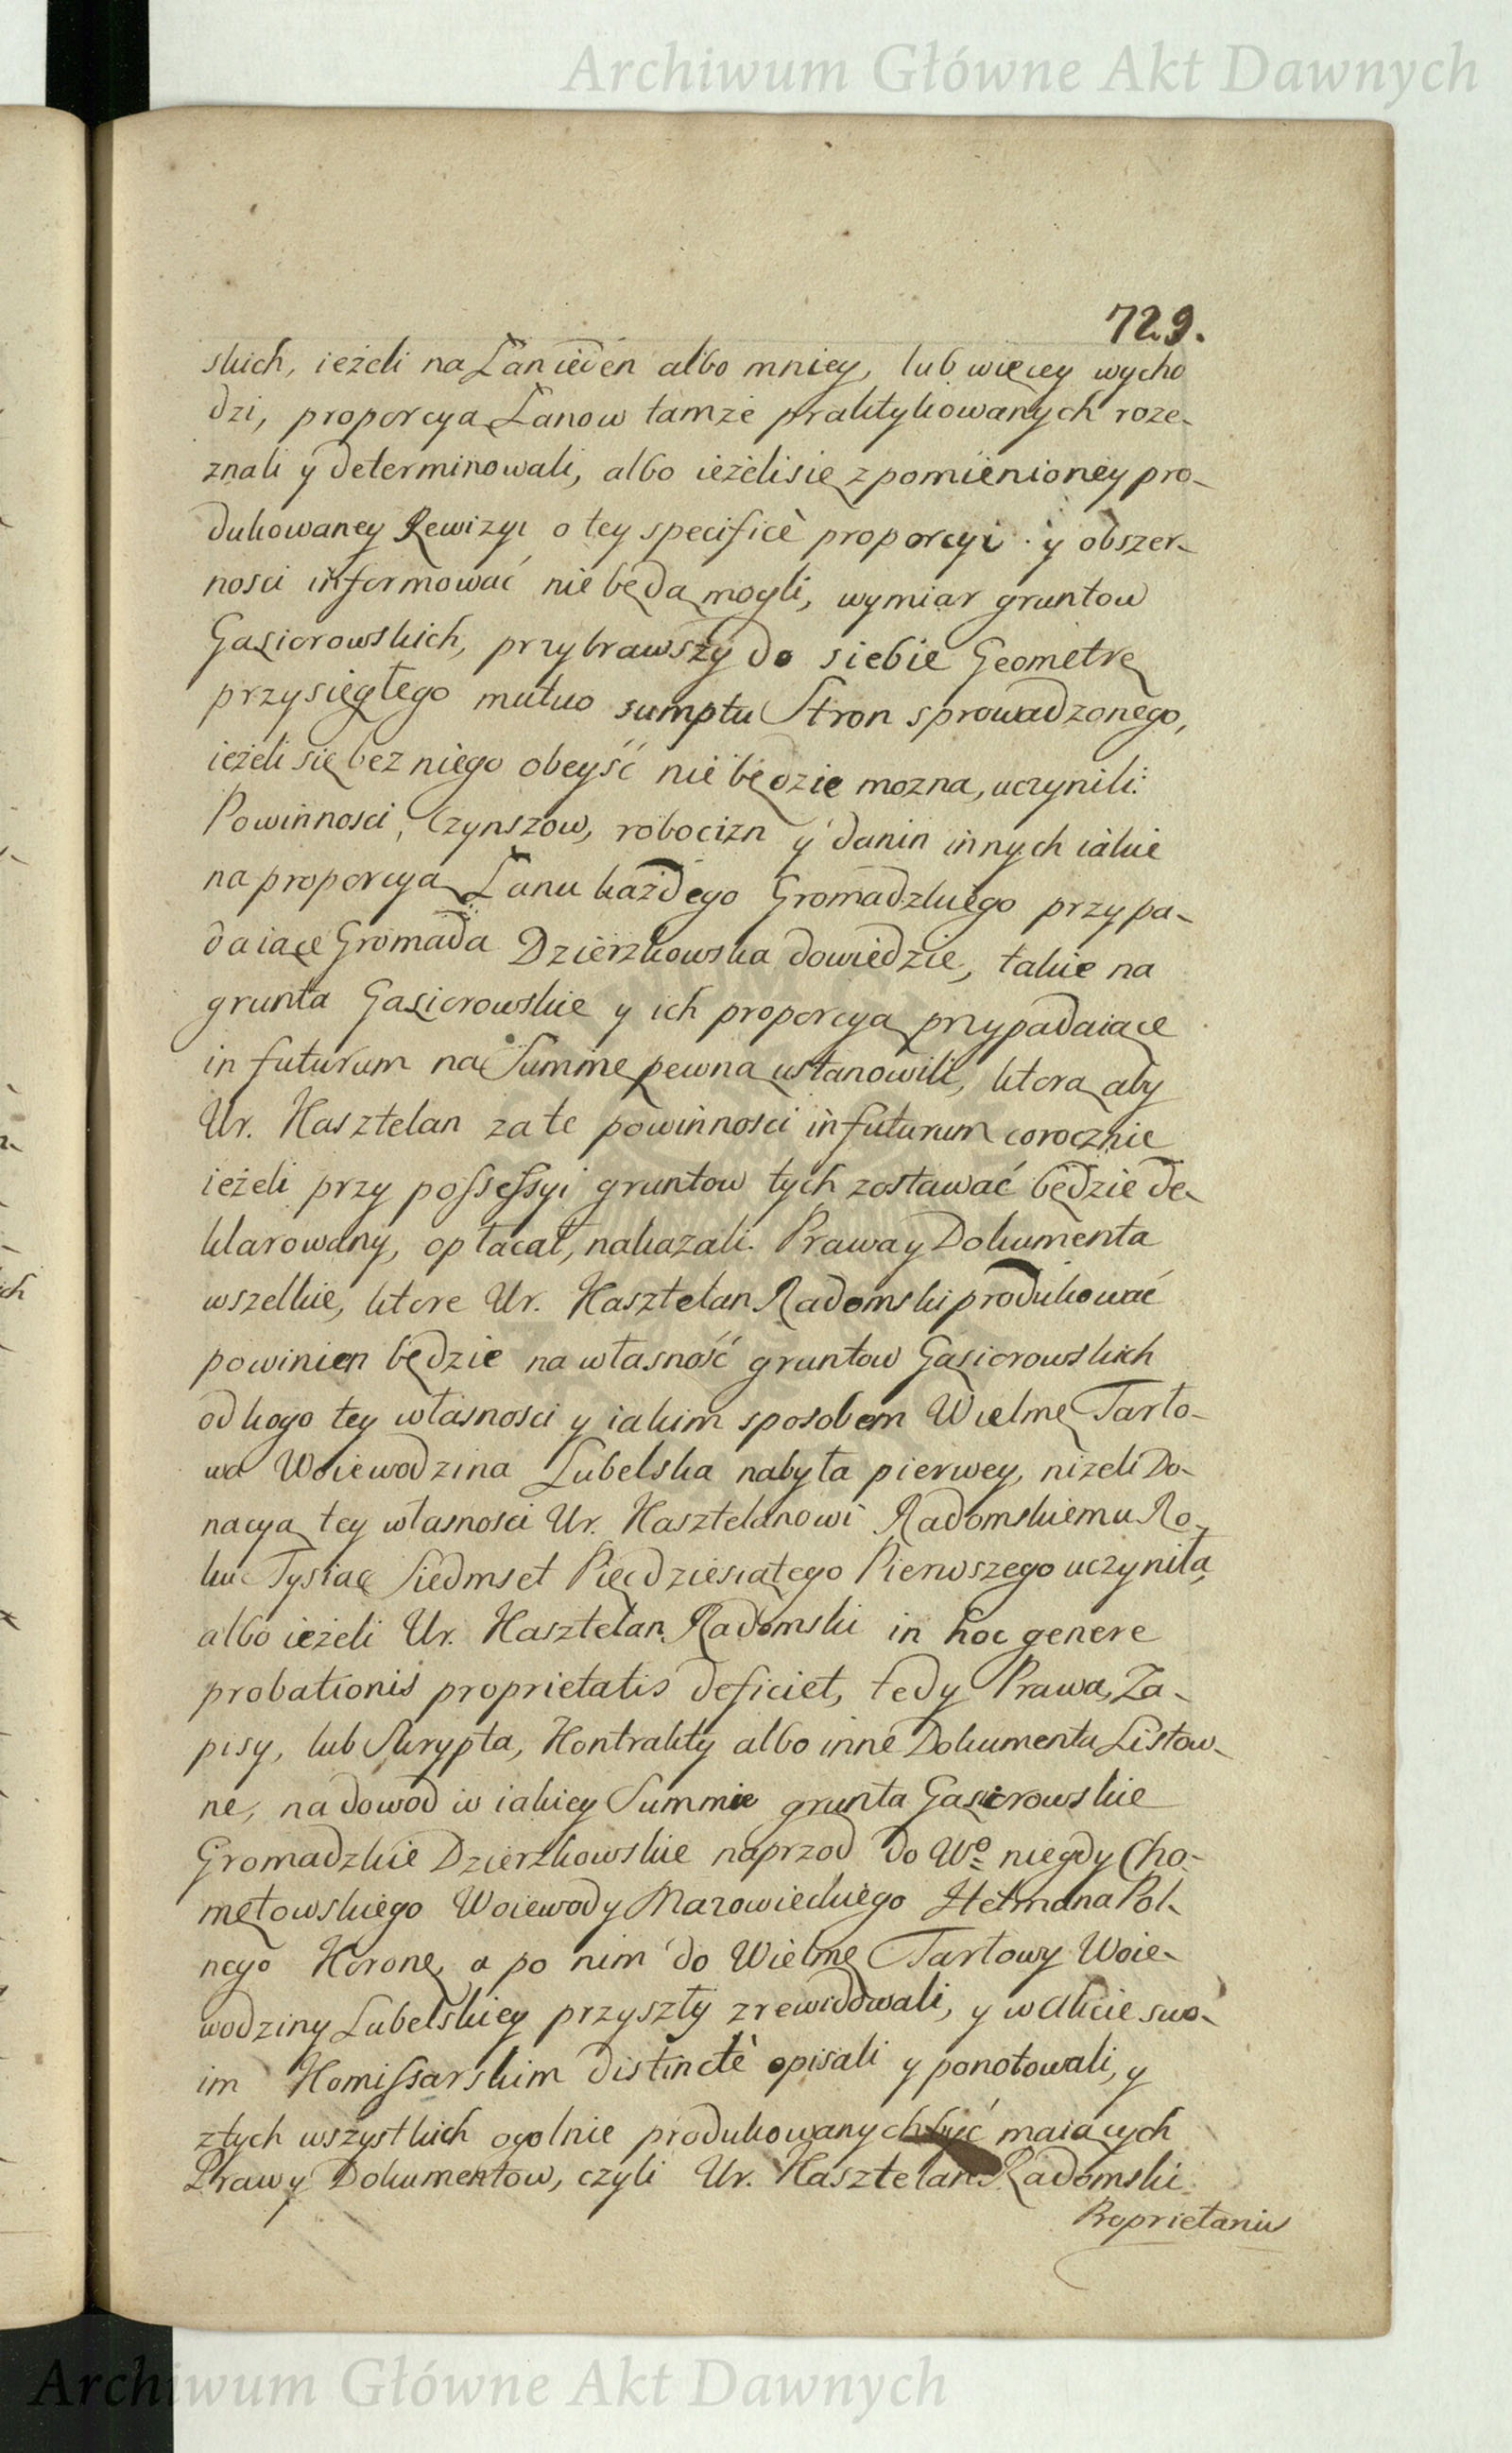 Archiwum Główne Akt Dawnych
729.
skich, ieżeli na Łan ieden albo mniey, lub więcey wycho
dzi, proporcyą Łanow tamże praktykowanych roze-
znali y determinowali, albo ieżeli się z pomienioney pro-
dukowaney Rewizyi o tey specificè proporcyi y obszer-
nosci informować nie będą mogli, wymiar gruntow
Gąsiorowskich, przybrawszy do siebie Geometrę
przysięgłego mutuo sumptu Stron sprowadzonego,
ieżeli się bez niego obeyść nie będzie mozna, uczynili:
Powinnosci, Czynszow, robocizn y danin innych iakie
na proporcyą Łanu każdego Gromadzkiego przypa-
daiące Gromada Dzierzkowska dowiedzie, takie na
grunta Gąsiorowskie y ich proporcyą przypadaiące
in futurum na Summę pewną ustanowili, ktorą aby
Ur. Kasztelan za te powinnosci in futurum corocznie
ieżeli przy possessyi gruntow tych zostawać będzie de-
klarowany, opłacał, nakazali. Prawa y Dokumenta
wszelkie, ktore Ur. Kasztelan Radomski produkować
powinien będzie na własność gruntow Gąsiorowskich
od kogo tey własnosci y iakim sposobem Wielmę Tarło-
wa Woiewodzina Lubelska nabyła pierwey, nizeli Do-
nacyą tey własnosci Ur. Kasztelanowi Radomskiemu Ro-
ku Tysiąc Siedmset Pięcdziesiątego Pierwszego uczyniła,
albo ieżeli Ur. Kasztelan Radomski in hoc genere
probationis proprietatis deficiet, tedy Prawa, Za-
pisy, lub Skrypta, Kontrakty albo inne Dokumenta Listow-
ne, na dowod w iakiey Summie grunta Gąsiorowskie
Gromadzkie Dzierzkowskie naprzod do Wo niegdy Cho-
mętowskiego Woiewody Mazowieckiego Hetmana Pol-
nego Koronę, a po nim do Wielmę Tarłowy Woie-
wodziny Lubelskiey przyszły zrewidowali, y w Akcie swo-
im Komissarskim distinctè opisali y ponotowali, y
z tych wszystkich ogolnie produkowanych być maiących
Praw y Dokumentow, czyli Ur. Kasztelan Radomski
Archiwum Główne Akt Dawnych